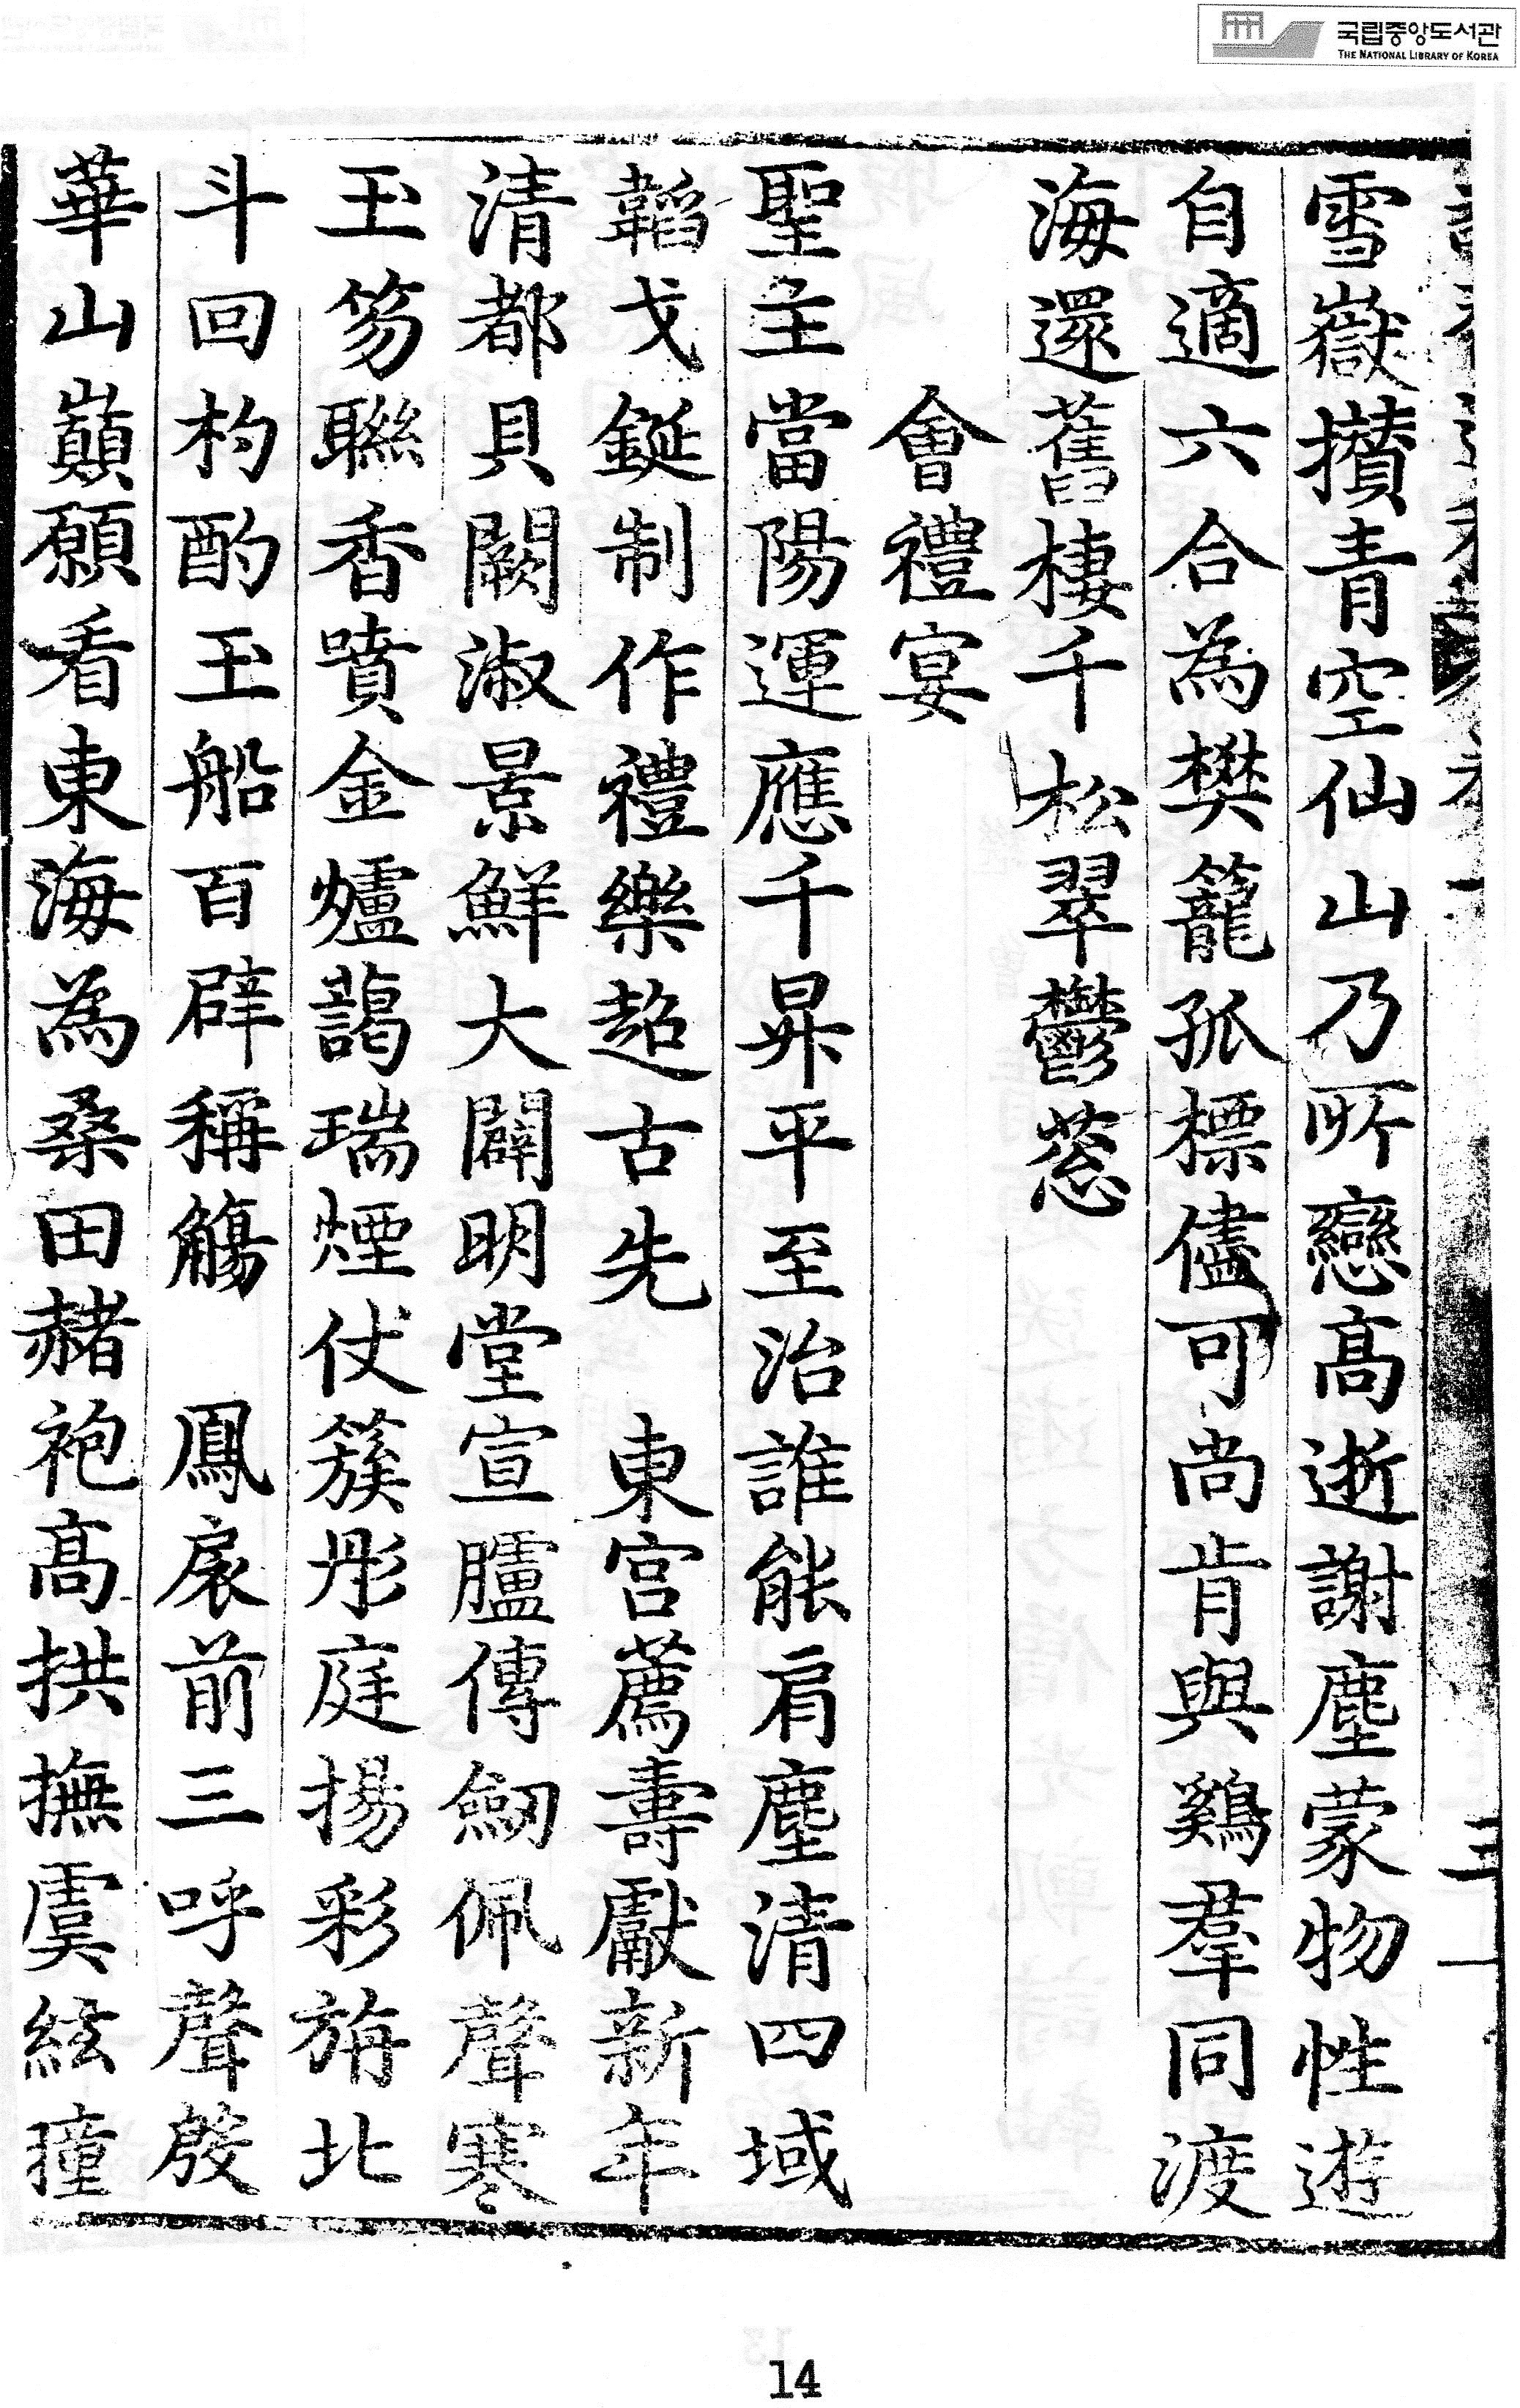 국립중앙도서관
THE NATIONAL LIBRARY OF KOREA
雪嶽攅青空仙山乃所戀髙逝謝塵蒙物性逰
自適六合為樊籠孤標儘可尚肯與鷄羣同渡
海還舊棲千松翠鬱蔥
會禮宴
聖主當陽運應千昇平至治誰能肩塵清四域
韜戈鋋制作禮樂超古先 東宮薦壽獻新年
清都貝闕淑景鮮大闢明堂宣臚傳劒佩聲寒
玉笏聯香噴金爐藹瑞煙仗簇彤庭揚彩旃北
斗回杓酌玉船百辟稱觴 鳳扆前三呼聲殷
華山巔願看東海為桑田赭袍髙拱撫虞絃撞
14